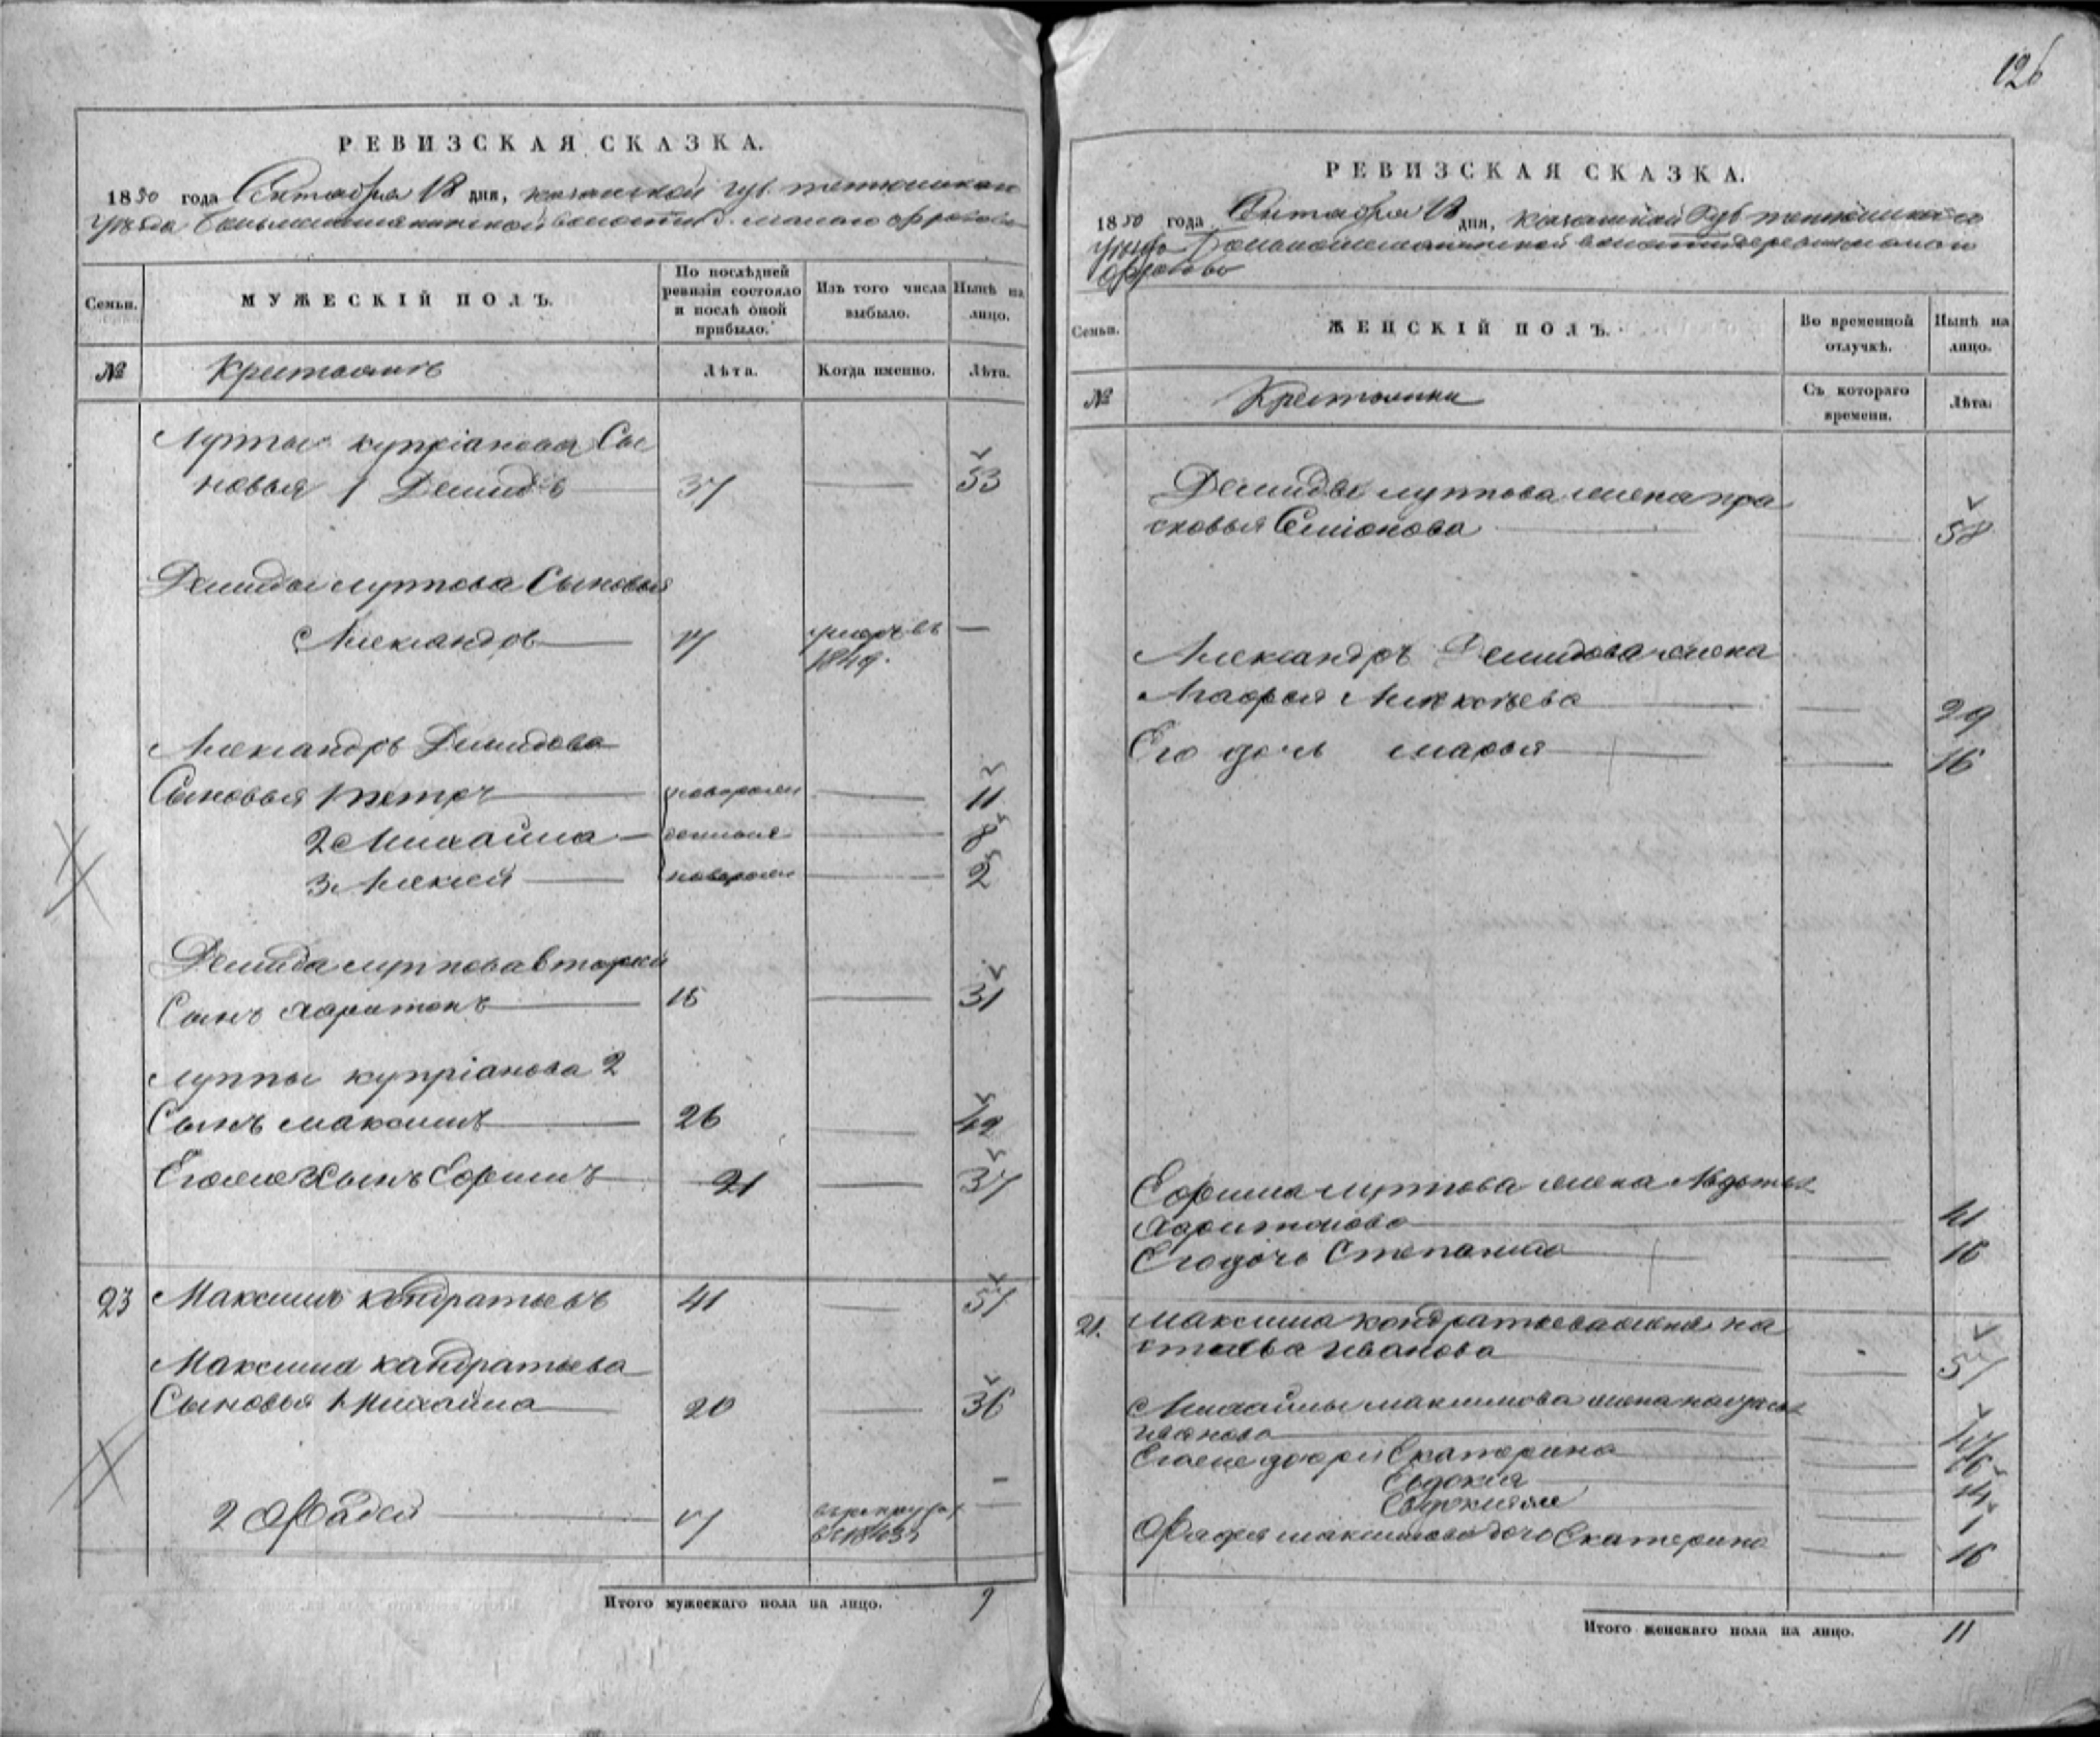 126
РЕВИЗСКАЯ СКАЗКА.
1850 года Октября 18 дня, казанской губ. тетюшскаго
уезда волости д. малаго
Семьи.
МУЖЕСКІЙ ПОЛЪ.
По послѣдней ревизіи состояло и послѣ оной прибыло.
Изъ того числа выбыло.
Нынѣ на лицо.
№
Крестьянъ
Лѣта.
Когда именно.
Лѣта.
Луппы купріанова Сы
новья 1 Демидъ 37 53
Демиды луппова Сыновья
Александръ 17 умеръ въ
1849.
Александръ Демидова
Сыновья 1 петръ новорожден 11
2 Михайла 8
3 Алексей новорожден 2
Демида луппова второй
Сынъ харитонъ 15 31
Луппы купріанова 2
Сынъ максимъ 26 42
Егоже Сынъ Ефимъ 21 37
23 Максимъ кондратьевъ 41 57
Максима кандратьева
Сыновья 1 Михайла 20 36
2 Фадей 17 в рекрутах
в 1843
Итого мужескаго пола на лицо. 9
РЕВИЗСКАЯ СКАЗКА.
1850 года Октября 18 дня, казанской Губ тетюшскаго
уезда волости деревни малой
Семьи.
ЖЕНСКІЙ ПОЛЪ.
Во временной отлучкѣ.
Нынѣ на лицо.
№
Крестьянки
Съ котораго времени.
Лѣта.
Демиды луппова жена пра
сковья Семіонова 58
Александръ Демидова жена
Агафья Алексеева 29
Его дочь марья 16
Ефима луппова жена Авдотья
харитонова 41
Егодочь Степанида 16
21. Максима кондратьева жена на
сталья иванова 57
Михайлы максимова жена
иванова
Егоже дочери Екатерина 16
Евдокія 14
1
Фадея максимова дочь Екатерина 16
Итого женскаго пола на лицо. 11